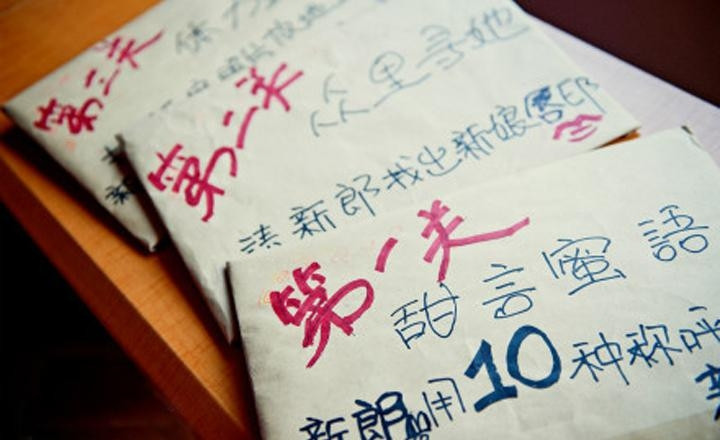 第三关 体力
第二关 众里寻她
请新郎找出新娘唇印
第一关 甜言蜜語
新郎用10种称呼